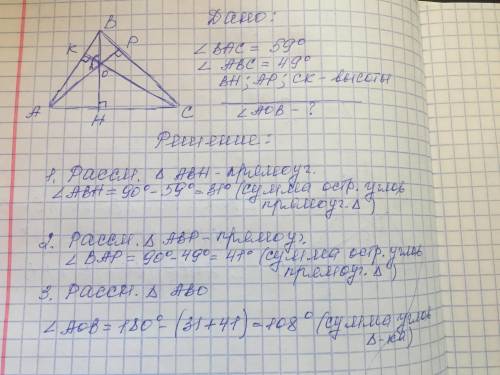 B
Дано:
K
P
∠BAC = 59°
O
∠ABC = 49°
BH; AP; CK - высоты
A
H
C
∠AOB - ?
Решение:
1. Рассм. Δ ABH - прямоуг.
∠ABH = 90° - 59° = 31° (сумма остр. углов
прямоуг. Δ)
2. Рассм. Δ ABP - прямоуг.
∠BAP = 90° - 49° = 41° (сумма остр. углов
прямоуг. Δ)
3. Рассм. Δ ABO
∠AOB = 180° - (31 + 41) = 108° (сумма углов
Δ-ка)